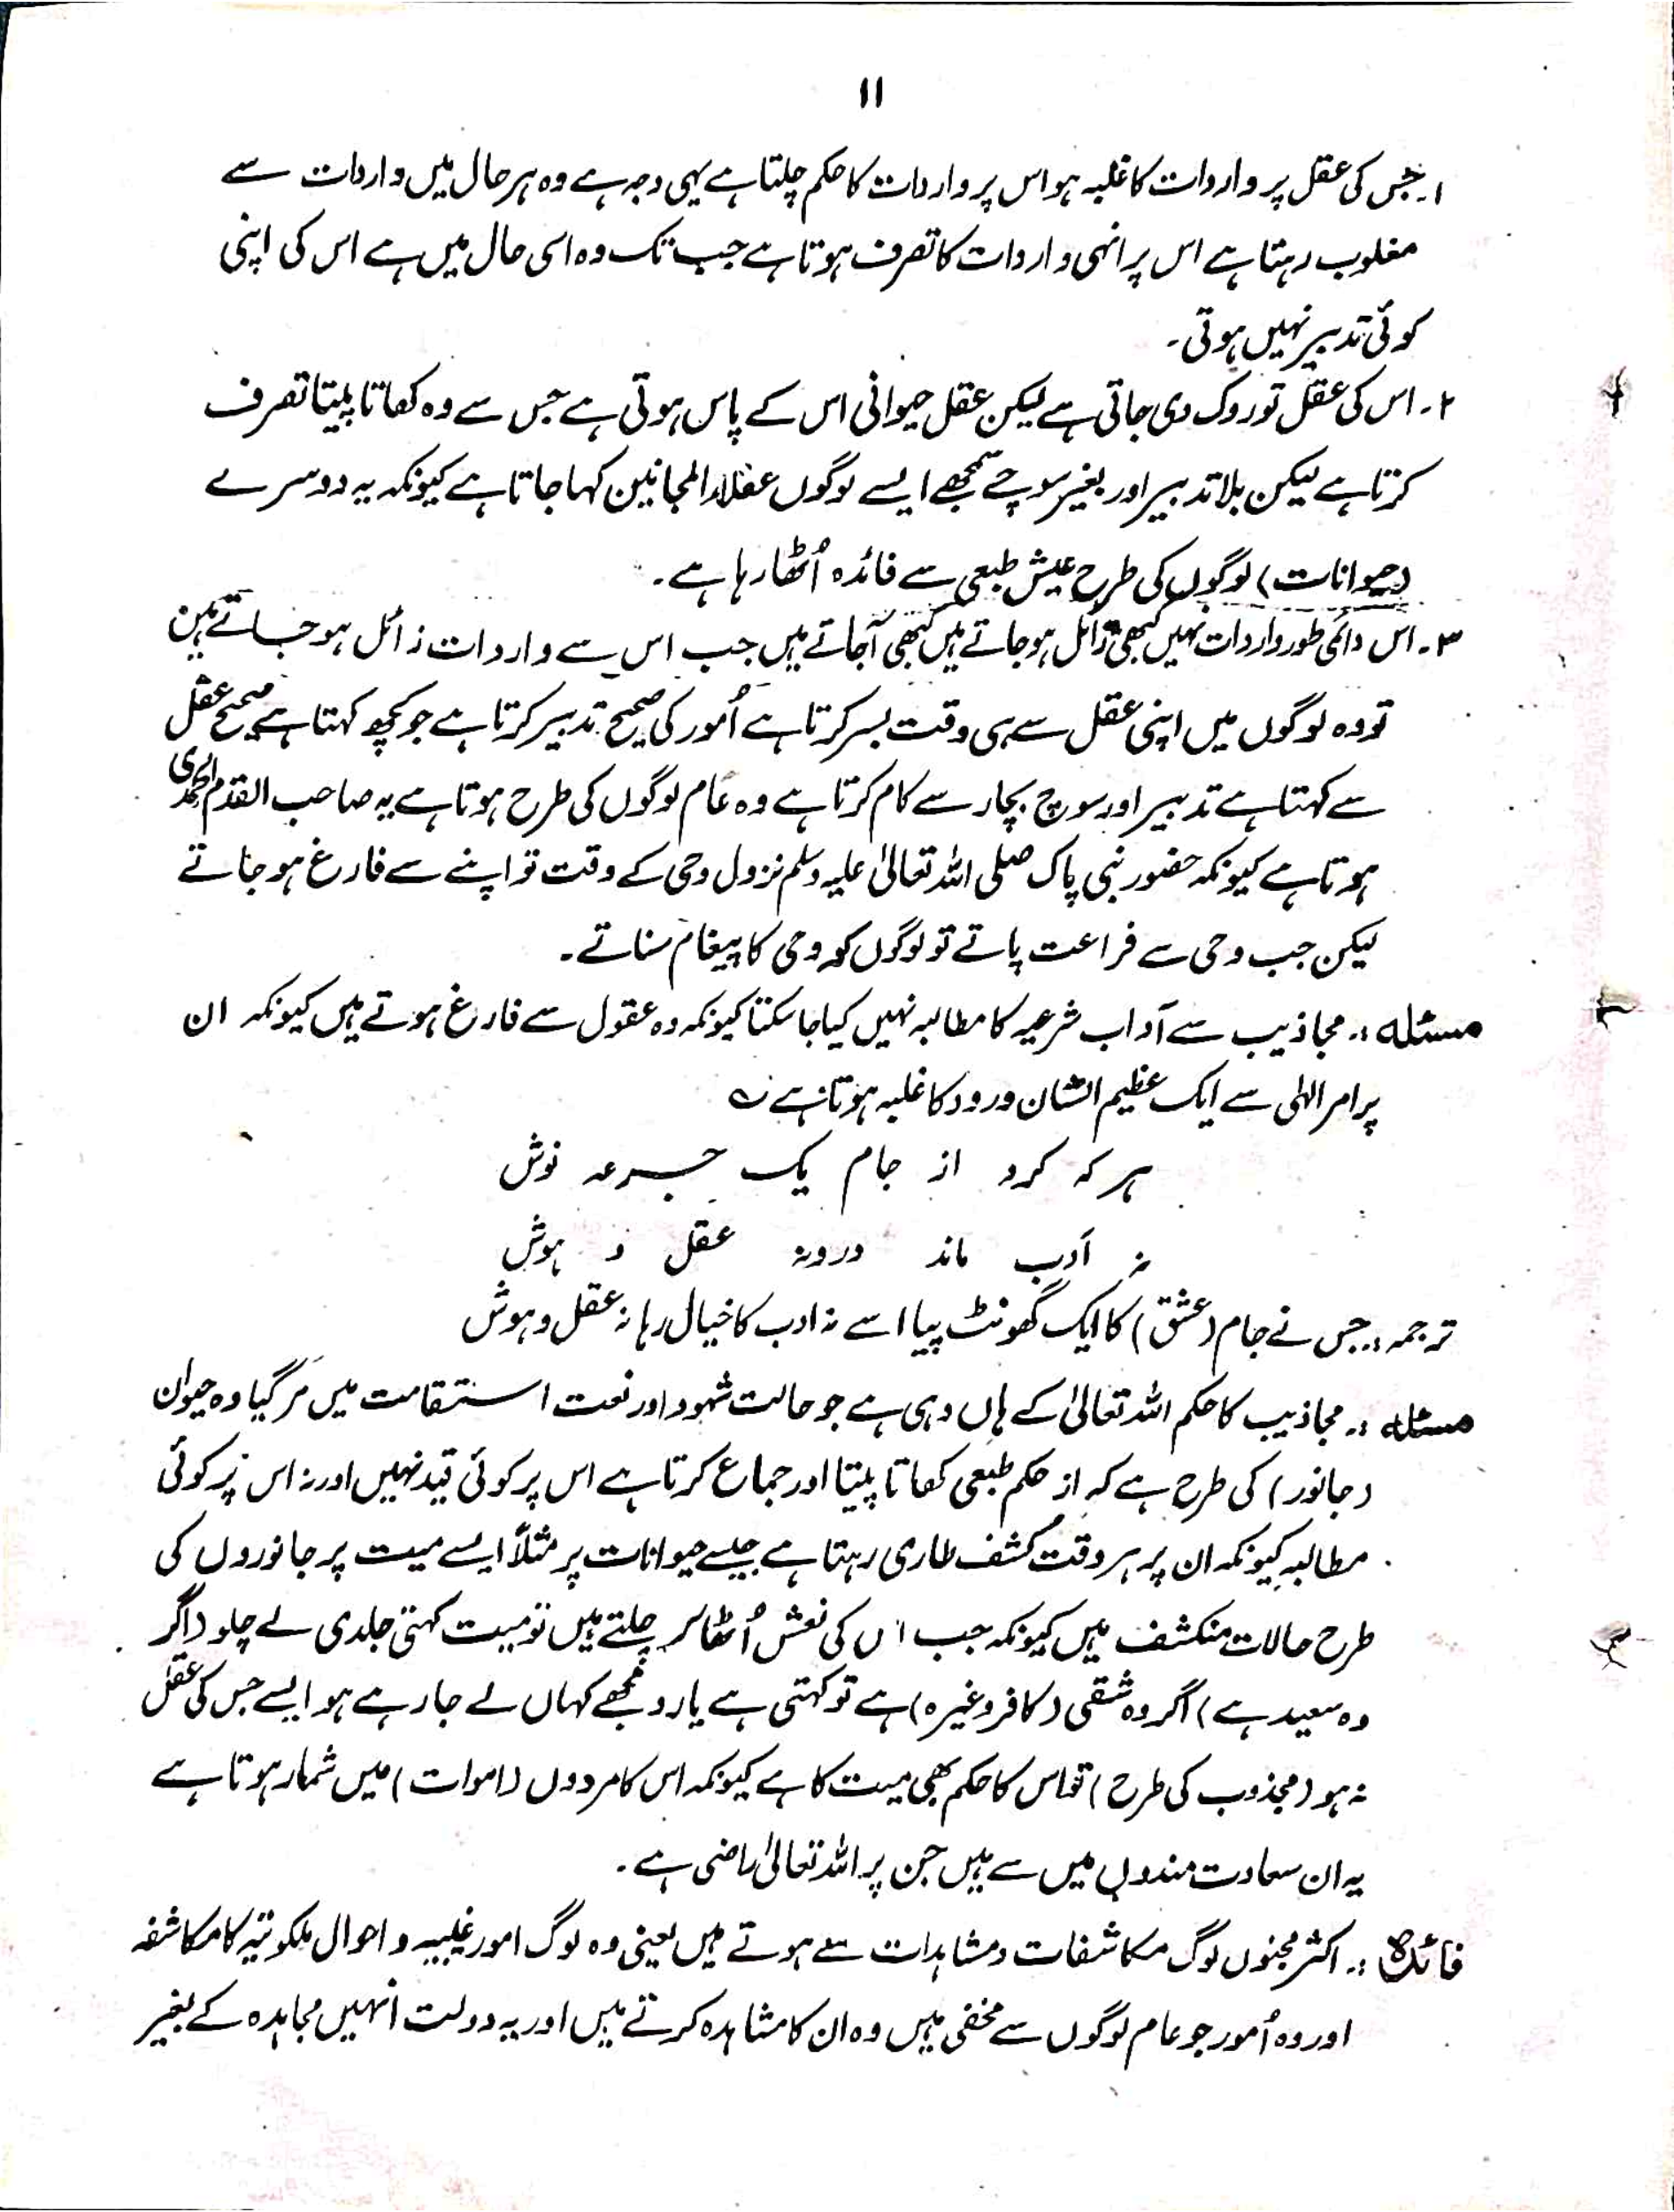 ۱۱
۱۔ جس کی عقل پر واردات کا غلبہ ہو اس پر واردات کا حکم چلتا ہے یہی وجہ ہے وہ ہر حال میں واردات سے
مغلوب رہتا ہے اس پر انہی واردات کا تصرف ہوتا ہے جب تک وہ اسی حال میں ہے اس کی اپنی
کوئی تدبیر نہیں ہوتی۔
۲۔ اس کی عقل تو روک دی جاتی ہے لیکن عقل حیوانی اس کے پاس ہوتی ہے جس سے وہ کھاتا پیتا تصرف
کرتا ہے لیکن بلا تدبیر اور بغیر سوچے سمجھے ایسے لوگوں عقلاء المجانین کہا جاتا ہے کیونکہ یہ دوسرے
(حیوانات) لوگوں کی طرح عیش طبعی سے فائدہ اُٹھا رہا ہے۔
۳۔ اس دائمی طور واردات نہیں کبھی زائل ہو جاتے ہیں کبھی آجاتے ہیں جب اس سے واردات زائل ہو جاتے ہیں
تو وہ لوگوں میں اپنی عقل سے ہی وقت بسر کرتا ہے اُمور کی صحیح تدبیر کرتا ہے جو کچھ کہتا ہے صحیح عقل
سے کہتا ہے تدبیر اور سوچ بچار سے کام کرتا ہے وہ عام لوگوں کی طرح ہوتا ہے یہ صاحب القدم المحمدی
ہوتا ہے کیونکہ حضور نبی پاک صلی اللہ تعالیٰ علیہ وسلم نزول وحی کے وقت تو اپنے سے فارغ ہو جاتے
لیکن جب وحی سے فراعت پاتے تو لوگوں کو وحی کا پیغام سناتے۔
مسئلہ :۔ مجاذیب سے آداب شرعیہ کا مطالبہ نہیں کیا جا سکتا کیونکہ وہ عقول سے فارغ ہوتے ہیں کیونکہ ان
پر امر الٰہی سے ایک عظیم الشان ورود کا غلبہ ہوتا ہے ؎
ہر کہ کرد از جام یک جرعہ نوش
نہ ادب ماند درو نہ عقل و ہوش
ترجمہ :۔ جس نے جام (عشق) کا ایک گھونٹ پیا اسے نہ ادب کا خیال رہا نہ عقل و ہوش
مسئلہ :۔ مجاذیب کا حکم اللہ تعالیٰ کے ہاں وہی ہے جو حالت شہود اور نعت استقامت میں مر گیا وہ حیوان
(جانور) کی طرح ہے کہ از حکم طبعی کھاتا پیتا اور جماع کرتا ہے اس پر کوئی قید نہیں اور نہ اس پر کوئی
مطالبہ کیونکہ ان پر ہر وقت کشف طاری رہتا ہے جیسے حیوانات پر مثلاً ایسے میت پر جانوروں کی
طرح حالات منکشف ہیں کیونکہ جب ان کی نعش اُٹھا کر چلتے ہیں تو میت کہتی جلدی لے چلو (اگر
وہ سعید ہے) اگر وہ شقی (کافر وغیرہ) ہے تو کہتی ہے یارو مجھے کہاں لے جا رہے ہو ایسے جس کی عقل
نہ ہو (مجذوب کی طرح) تو اس کا حکم بھی میت کا ہے کیونکہ اس کا مردوں (اموات) میں شمار ہوتا ہے
یہ ان سعادت مندوں میں سے ہیں جن پر اللہ تعالیٰ راضی ہے۔
فائدہ :۔ اکثر مجنوں لوگ مکاشفات و مشاہدات سے ہوتے ہیں یعنی وہ لوگ امور غیبیہ و احوال ملکوتیہ کا مکاشفہ
اور وہ اُمور جو عام لوگوں سے مخفی ہیں وہ ان کا مشاہدہ کرتے ہیں اور یہ دولت اُنہیں مجاہدہ کے بغیر